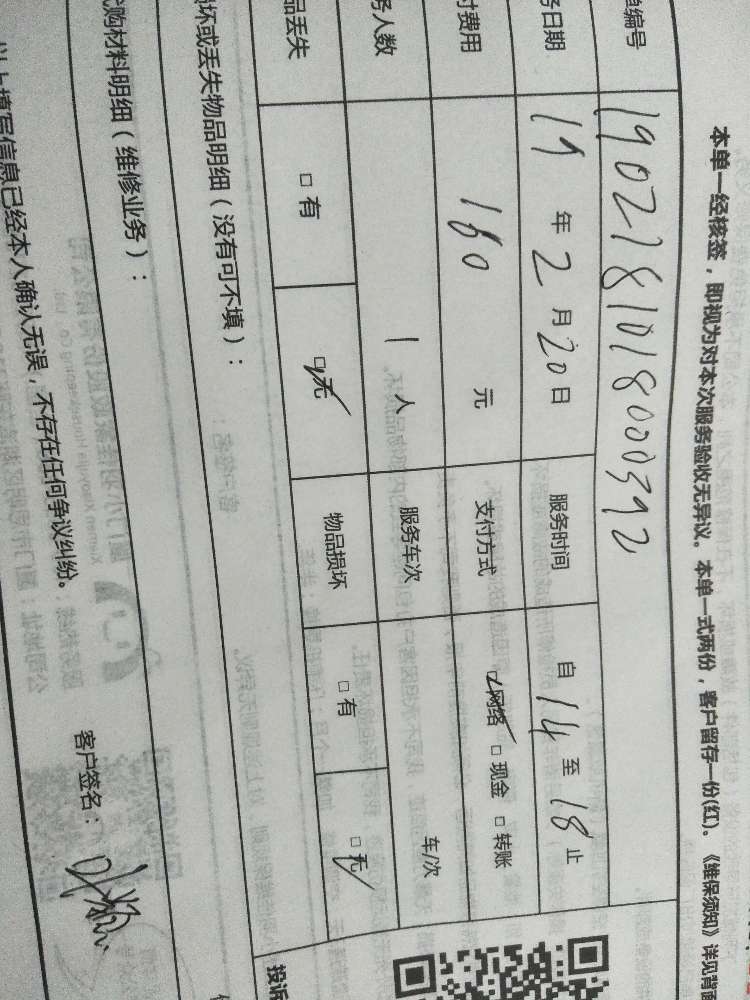 本单一经核签，即视为对本次服务验收无异议。本单一式两份，客户留存一份(红)。《维保须知》详见背面
单编号 1902181018000392
务日期 19 年 2 月 20 日 服务时间 自 14 至 18 止
付费用 160 元 支付方式 ☑网络 □现金 □转账
务人数 1 人 服务车次 车/次
品丢失 □有 ☑无 物品损坏 □有 ☑无
损坏或丢失物品明细（没有可不填）：
投诉
代购材料明细（维修业务）：
以上填写信息已经本人确认无误，不存在任何争议纠纷。
客户签名：